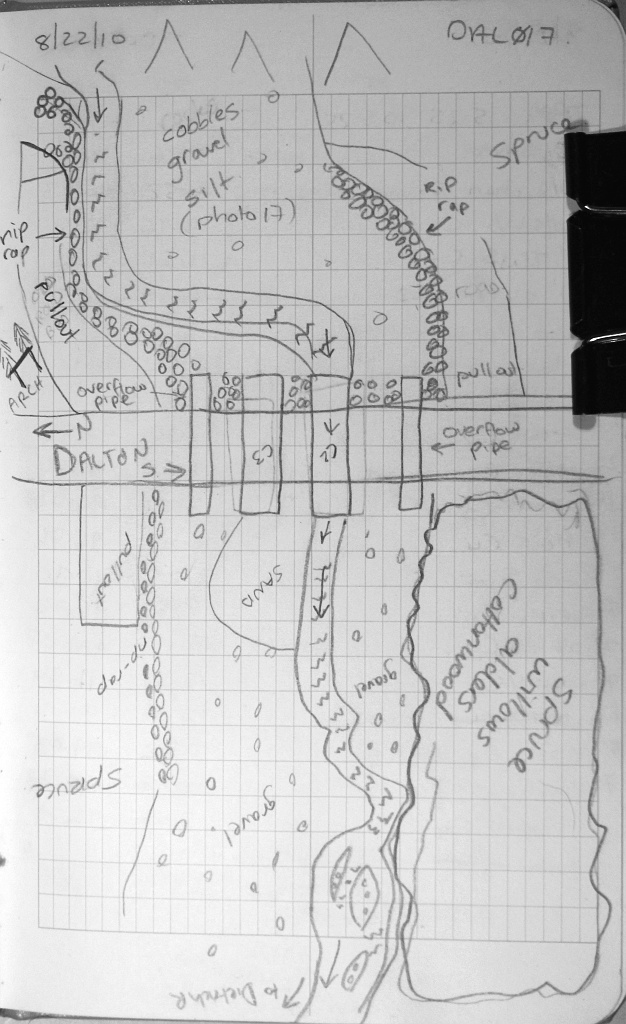 8/22/10
DALØ17.
cobbles
gravel
silt
(photo 17)
Spruce
Rip
rap
rip
rap
pullout
road
pullout
ARCH
overflow
pipe
N
DALTON
S
C3
C2
overflow
pipe
pullout
SAND
rip-rap
gravel
Spruce
willows
alders
Cottonwood
Spruce
gravel
to Dietrich R